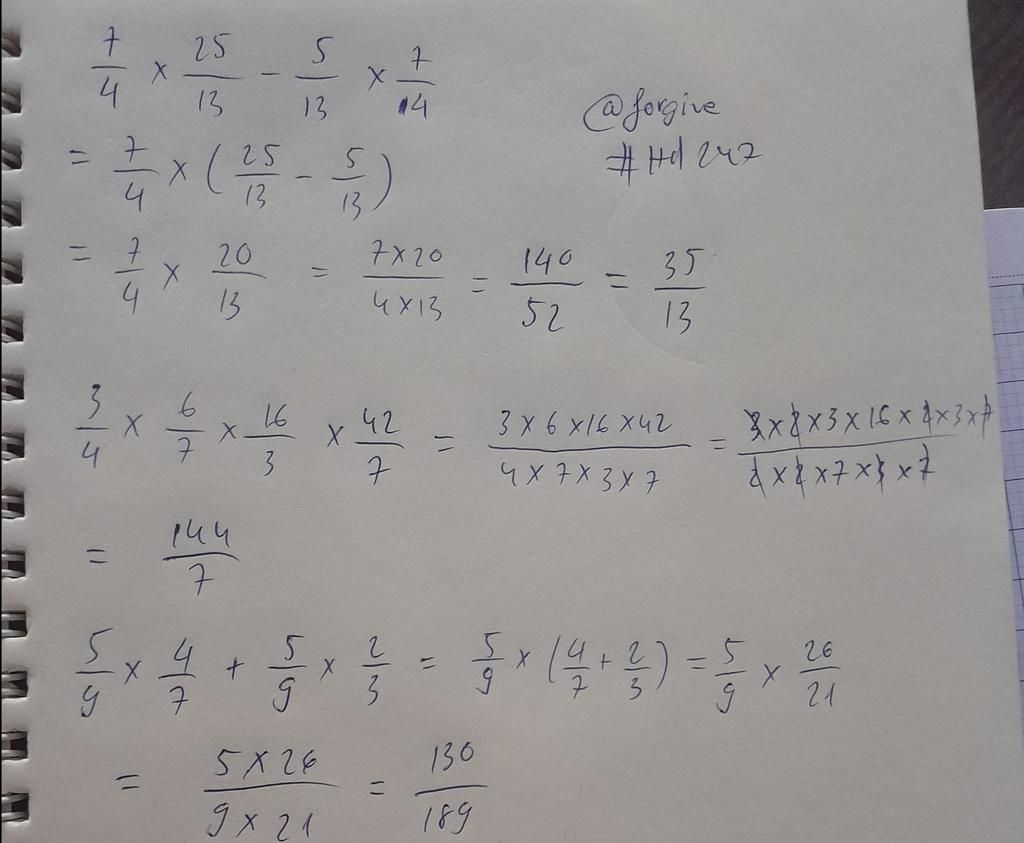 7/4 × 25/13 − 5/13 × 7/14
@forgive
= 7/4 × (25/13 − 5/13)
#Hd 247
= 7/4 × 20/13 = 7×20/4×13 = 140/52 = 35/13
3/4 × 6/7 × 16/3 × 42/7 = 3×6×16×42/4×7×3×7 = 3×2×3×16×2×3×7/2×2×7×3×7
= 144/7
5/9 × 4/7 + 5/9 × 2/3 = 5/9 × (4/7 + 2/3) = 5/9 × 26/21
= 5×26/9×21 = 130/189